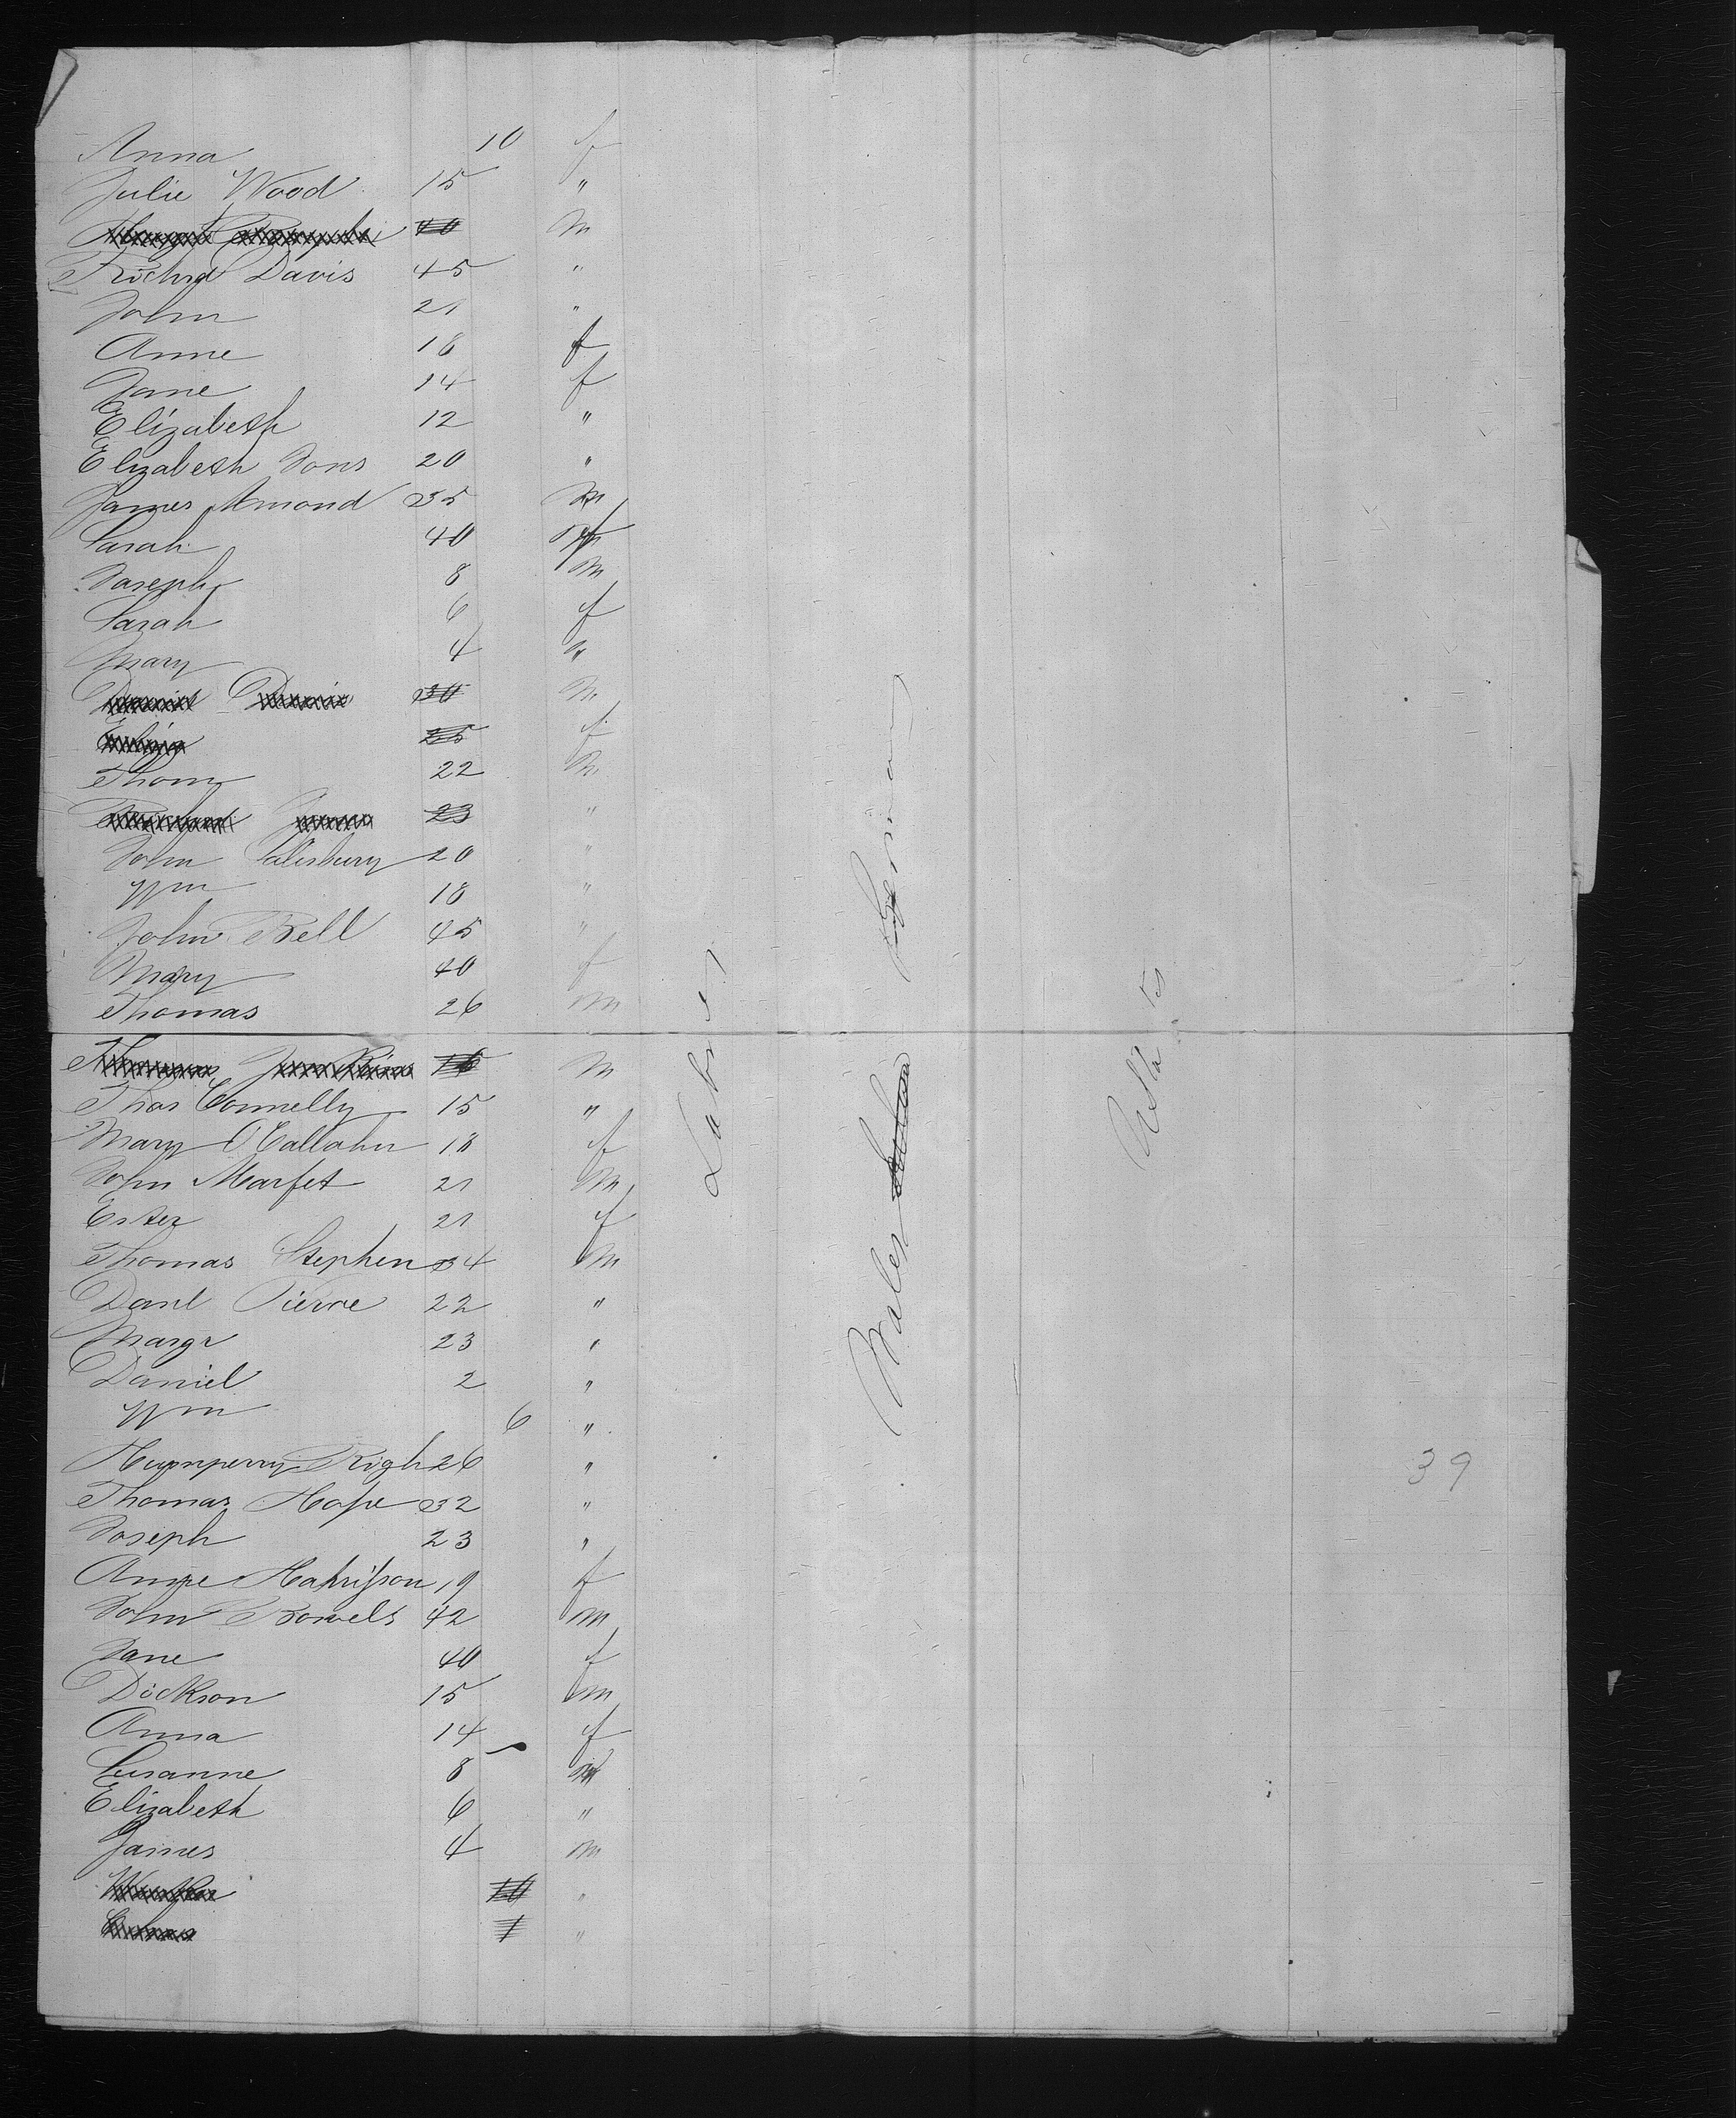 Anna 10 f
Julie Wood 15 "
40 m
Richd Davis 45 "
John 21 "
Anne 16 f
Jane 14 f
Elizabeth 12 "
Elizabeth Jons 20 "
James Amond 35 m
Sarah 40 f
Joseph 8 m
Sarah 6 f
Mary 4 "
Daniel Davis 30 m
25 f
Thom 22 m
23 "
John Salisbury 20 "
Wm 18 "
John Bell 45 "
Mary 40 f
Thomas 26 m
Thomas Jenkins 16 m
Thos Connelly 15 "
Mary OCallahn 18 f
John Marfet 21 m
Ester 21 f
Thomas Stephen 34 m
Danl Pierre 22 "
Margr 23 "
Daniel 2 "
Wm 6 "
Humperry Righ 26 "
Thomas Hope 32 "
Joseph 23 "
Anne Hahrisson 19 f
John Bowels 42 m
Jane 40 f
Dickson 15 m
Anna 14 f
Susanne 8
Elizabeth 6 "
James 4 m
10 "
1 "
Labrer
Wales German
U Sta ts
39